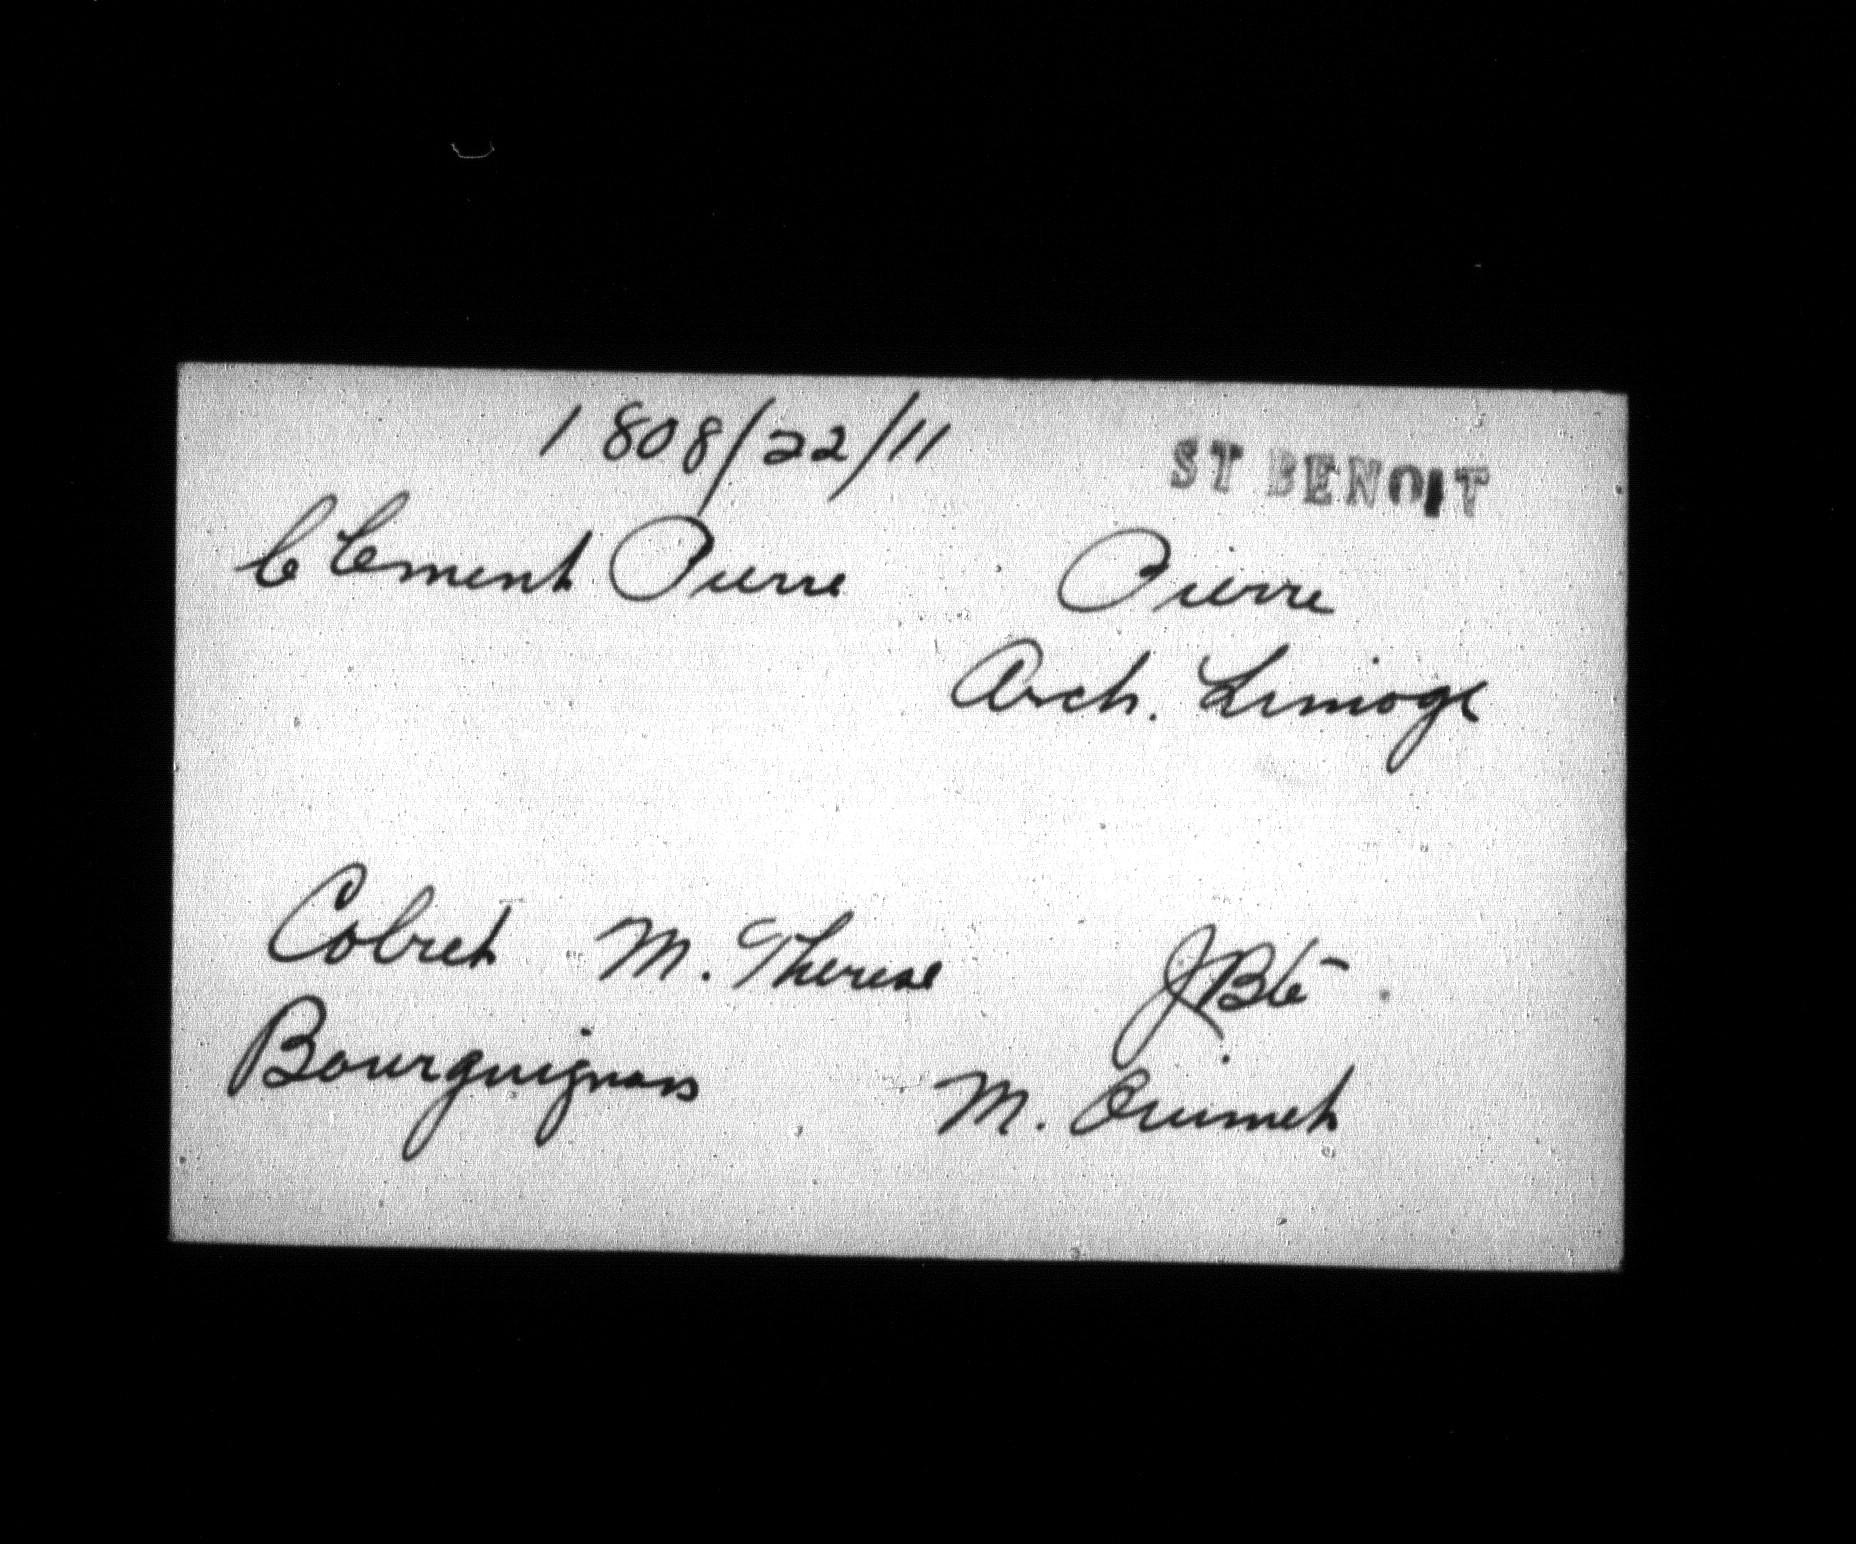 1808/22/11
ST BENOIT
Clement Pierre Pierre
Arch. Limoge
Colret M. Therese JBte
Bourguignon M. Ouimet